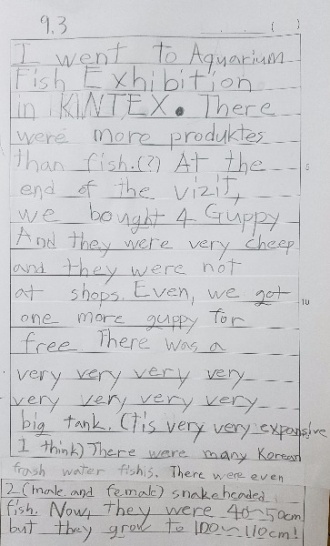 9.3 ( )
I went to Aquarium
Fish Exhibition
in KINTEX. There
were more produktes
than fish.(?) At the
end of the vizit,
we bought 4 Guppy
And they were very cheep
and they were not
at shops. Even, we got
one more guppy for
free There was a
very very very very
very very, very very
big tank. (It's very very expansive
I think) There were many Korean
fresh water fishis. There were even
2 (male and female) snakeheaded
fish. Now, they were 40~50cm
but they grow to 100~110cm!